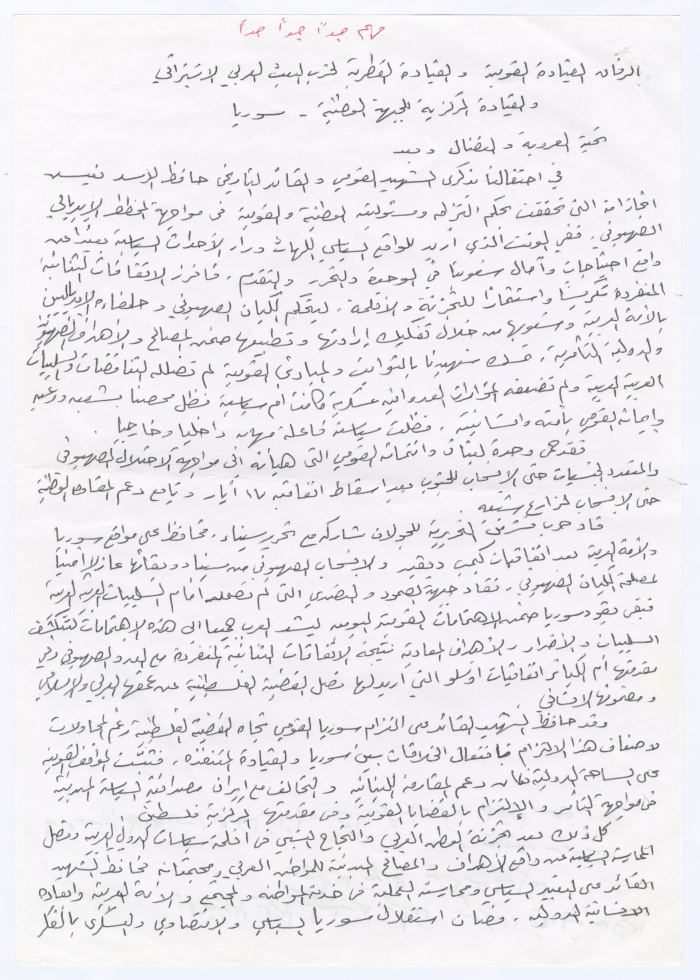 مهم جداً جداً جداً
الرفاق القيادة القومية والقيادة القطرية لحزب البعث العربي الاشتراكي
والقيادة المركزية للجبهة الوطنية - سوريا
تحية العروبة والنضال وبعد
في احتفالنا بذكرى الشهيد القومي والقائد التاريخي حافظ الأسد
التي تحققت بحكم التزامه ومسئوليته الوطنية والقومية في مواجهة المخطط الإمبريالي
الصهيوني. ففي الوقت الذي أريد للواقع السياسي اللهاث وراء الأحداث السياسية بعيداً عن
واقع احتياجات وآمال شعوبنا في الوحدة والتحرر والتقدم. الاتفاقات الثنائية
المنفردة تكريساً واستقراراً للتجزئة والأقلمة. ليتحكم الكيان الصهيوني وحلفاءه الإمبرياليين
بالأمة العربية وشعوبها من خلال تفكيك إرادتها ضمن المصالح والأهداف الصهيونية
والدولية التآمرية. شهيدنا بالثوابت والمبادئ القومية لم تضلله التناقضات والسلبيات
العربية العربية ولم تضعفه المؤامرات العدوانية عسكرية كانت أم سياسية فظل محصناً بشعبه
وإيمانه القومي بأمته وإنسانيته. فظلت سياسته فاعلة داخلياً وخارجياً.
فقد حمى وحدة لبنان وانتمائه القومي التي هيأته إلى مواجهة الاحتلال الصهيوني
والمتعدد الجنسيات حتى الانسحاب للجنوب بعد إسقاط اتفاقية ١٧ أيار وتابع دعم المقاومة الوطنية
حتى الانسحاب لمزارع شبعه
قاد حرب تشرين التحريرية للجولان شاركه مع تحرير سيناء. محافظ على مواقع سوريا
والأمة العربية بعد اتفاقيات كمب ديفيد والانسحاب الصهيوني من سيناء وبقائها عازلاً أمنياً
لمصلحة الكيان الصهيوني. فقاد جبهة الصمود والتصدي التي لم تصمد أمام السلبيات العربية العربية
فبقي يقود سوريا ضمن الاهتمامات القومية اليومية ليشد العرب جميعا إلى هذه الاهتمامات لتتكشف
السلبيات والأضرار والأهداف المعادية نتيجة الاتفاقات الثنائية المنفردة مع العدو الصهيوني وفي
مقدمتها أم الكبائر اتفاقيات أوسلو التي أريد لها فصل القضية الفلسطينية عن عمقها العربي والإسلامي
ومضمونها الإنساني
وقد حافظ الشهيد القائد على التزام سوريا القومي تجاه القضية الفلسطينية رغم المحاولات
لإضعاف هذا الالتزام بافتعال الخلافات بين سوريا والقيادة المتنفذه. المواقف القومية
على الساحة الدولية فكان دعم المقاومة اللبنانية والتحالف مع إيران مصداقية السياسة المبدئية
في مواجهة التآمر والالتزام بالقضايا القومية وفي مقدمتها المركزية فلسطين
كل ذلك بعد تجزئة الوطن العربي والنجاح النسبي في أقلمة سياسات الدول العربية وفصل
الممارسة السياسية عن واقع الأهداف والمصالح المبدئية للمواطن العربي ومجتمعاته فحافظ الشهيد
القائد على السياسي وممارسته العملية في خدمة المواطنه والمجتمع والأمة العربية
الإنسانية الدولية. فضمان استقلال سوريا السياسي والاقتصادي والعسكري بالفكر